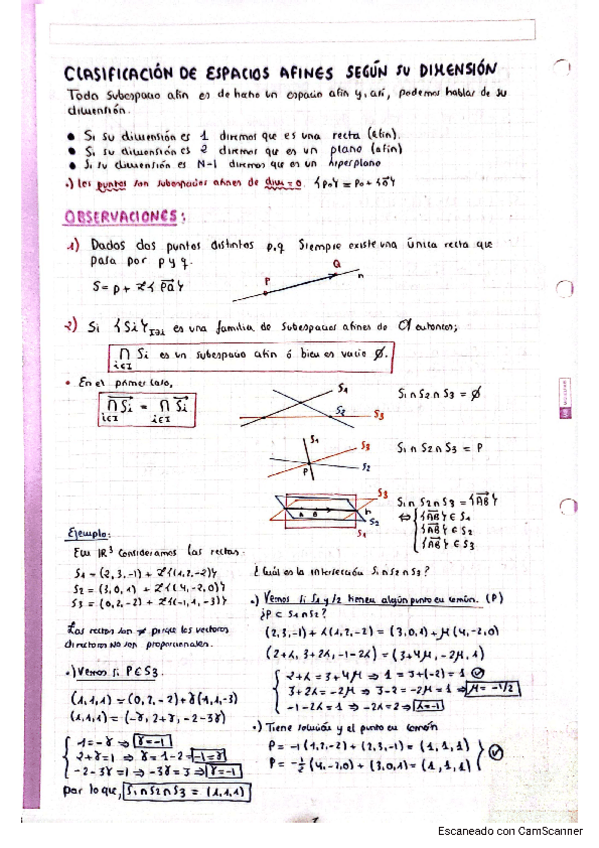 CLASIFICACIÓN DE ESPACIOS AFINES SEGÚN SU DIMENSIÓN
Todo subespacio afín es de hecho un espacio afín y, así, podemos hablar de su
dimensión.
• Si su dimensión es 1 diremos que es una recta (afín).
• Si su dimensión es 2 diremos que es un plano (afín)
• Si su dimensión es N-1 diremos que es un hiperplano
•) Los puntos son subespacios afines de dim = 0. {P₀} = P₀ + {0⃗}
OBSERVACIONES:
1) Dados dos puntos distintos p,q Siempre existe una única recta que
pasa por p y q.
S = p + L{PQ⃗}
P
Q
r
2) Si {Si}i∈I es una familia de subespacios afines de A entonces;
∩ Si es un subespacio afín ó bien es vacío ∅.
i∈I
• En el primer caso,
∩ Si = ∩ Si
i∈I i∈I
S1
S2
S3
S1 ∩ S2 ∩ S3 = ∅
S1
S3
S2
P
S1 ∩ S2 ∩ S3 = P
S3
A B r
S2
S1
S1 ∩ S2 ∩ S3 = {AB⃗}
⇔ { {AB⃗} ∈ S1
{AB⃗} ∈ S2
{AB⃗} ∈ S3
Ejemplo:
En ℝ³ consideramos las rectas:
S1 = (2,3,-1) + L{(1,2,-2)}
S2 = (3,0,1) + L{(4,-2,0)}
S3 = (0,2,-2) + L{(-1,1,-3)}
Las rectas son ≠ porque los vectores
directores no son proporcionales.
¿Cuál es la intersección S1 ∩ S2 ∩ S3?
•) Vemos si S1 y S2 tienen algún punto en común. (P)
¿P ∈ S1 ∩ S2?
(2,3,-1) + λ(1,2,-2) = (3,0,1) + μ(4,-2,0)
(2+λ, 3+2λ, -1-2λ) = (3+4μ, -2μ, 1)
2+λ = 3+4μ ⇒ 1 = 3+(-2) = 1
3+2λ = -2μ ⇒ 3-2 = -2μ = 1 ⇒ μ = -1/2
-1-2λ = 1 ⇒ -2λ = 2 ⇒ λ = -1
•) Tiene solución y el punto en común
P = -1(1,2,-2) + (2,3,-1) = (1,1,1)
P = -1/2 (4,-2,0) + (3,0,1) = (1,1,1)
•) Vemos si P ∈ S3.
(1,1,1) = (0,2,-2) + γ(-1,1,-3)
(1,1,1) = (-γ, 2+γ, -2-3γ)
1 = -γ ⇒ γ = -1
2+γ = 1 ⇒ γ = 1-2 = -1 = γ
-2-3γ = 1 ⇒ -3γ = 3 ⇒ γ = -1
por lo que, S1 ∩ S2 ∩ S3 = (1,1,1)
Escaneado con CamScanner